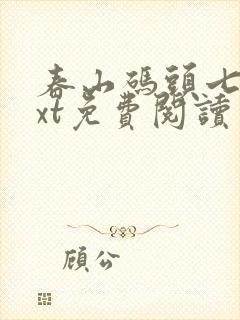 春山碼頭七
xt免費閱讀
顧公